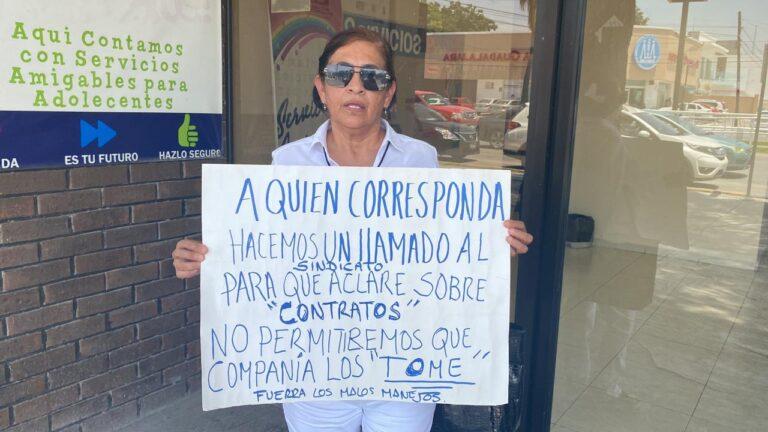 Aqui Contamos
con Servicios
Amigables para
Adolecentes
ES TU FUTURO
HAZLO SEGURO
SERVICIOS
GUADALAJARA
A QUIEN CORRESPONDA
HACEMOS UN LLAMADO AL
SINDICATO
PARA QUE ACLARE SOBRE
"CONTRATOS"
NO PERMITIREMOS QUE
COMPANÍA LOS "TOME"
FUERRA LOS MALOS MANEJOS.